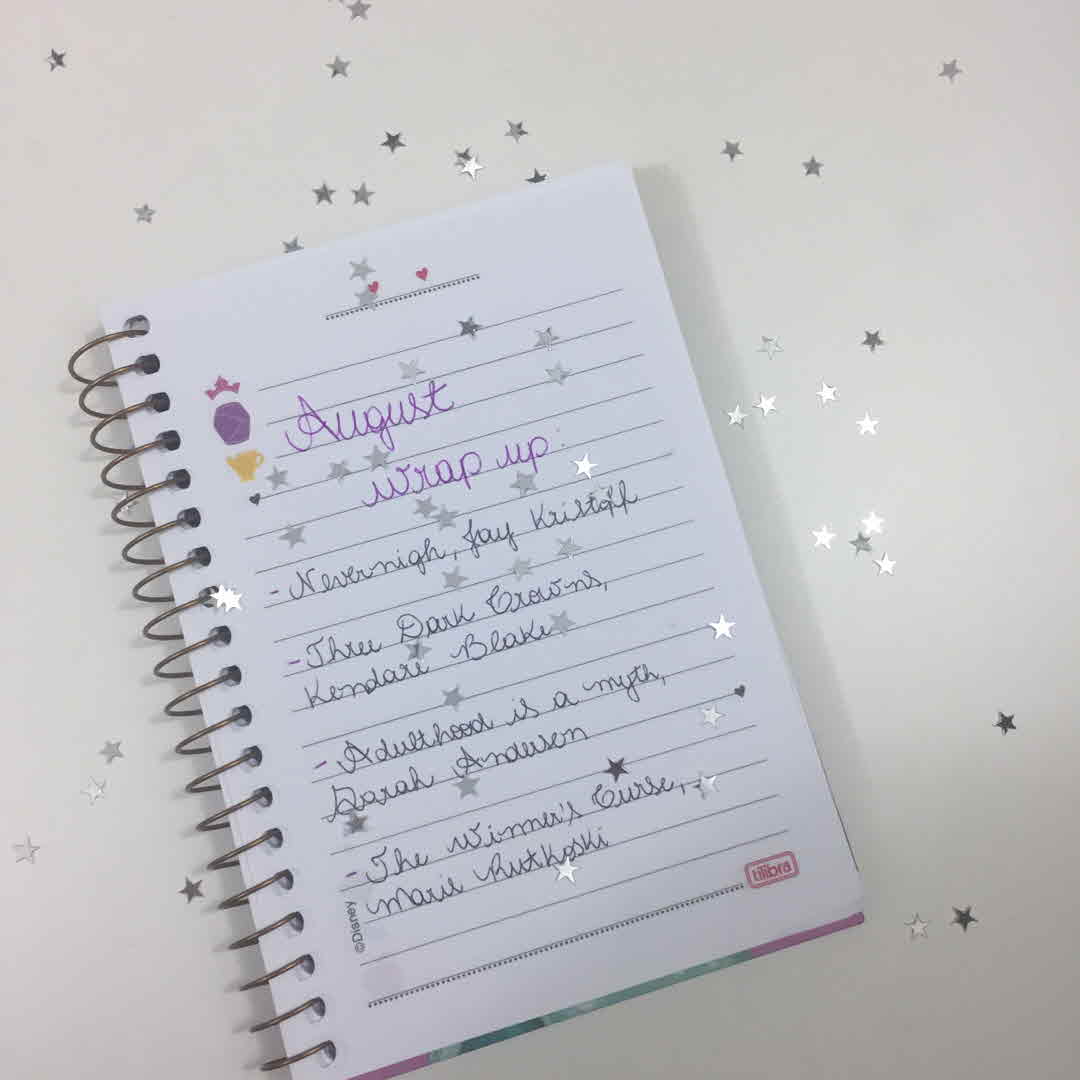 August
wrap up:
- Nevernigh, Jay Kristoff
- Three Dark Crowns,
Kendare Blake
- Adulthood is a myth,
Sarah Andersen
- The Winner's Curse,
Marie Rutkoski
tilibra
©Disney